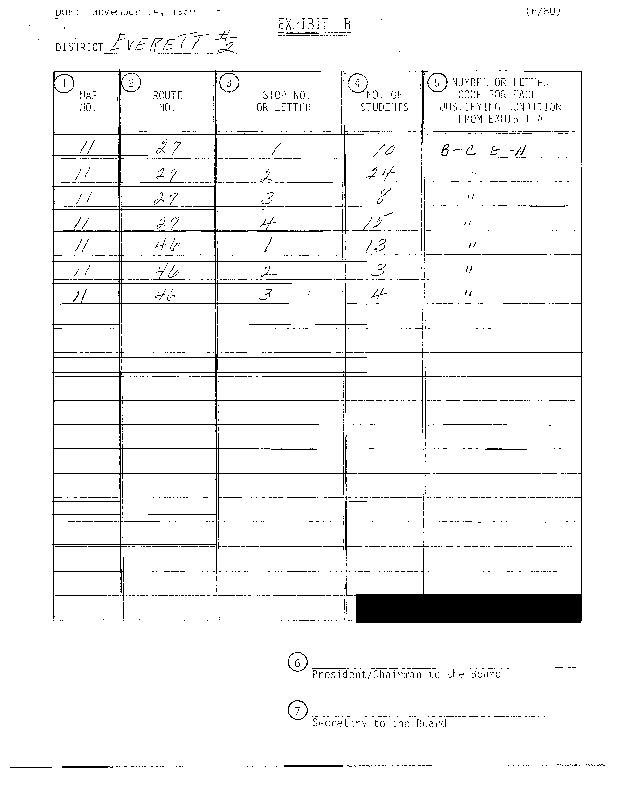 (6/80)
EXHIBIT B
DISTRICT EVERETT #2
1 MAP NO. 2 ROUTE NO. 3 STOP NO. OR LETTER 4 NO. OF STUDENTS 5 NUMBER OR LETTER CODE FOR EACH JUSTIFYING CONDITION FROM EXHIBIT A
11 29 1 10 B-C E-H
11 29 2 24 "
11 29 3 8 "
11 29 4 15 "
11 46 1 13 "
11 46 2 3 "
11 46 3 4 "
6
President/Chairman to the Board
7
Secretary to the Board